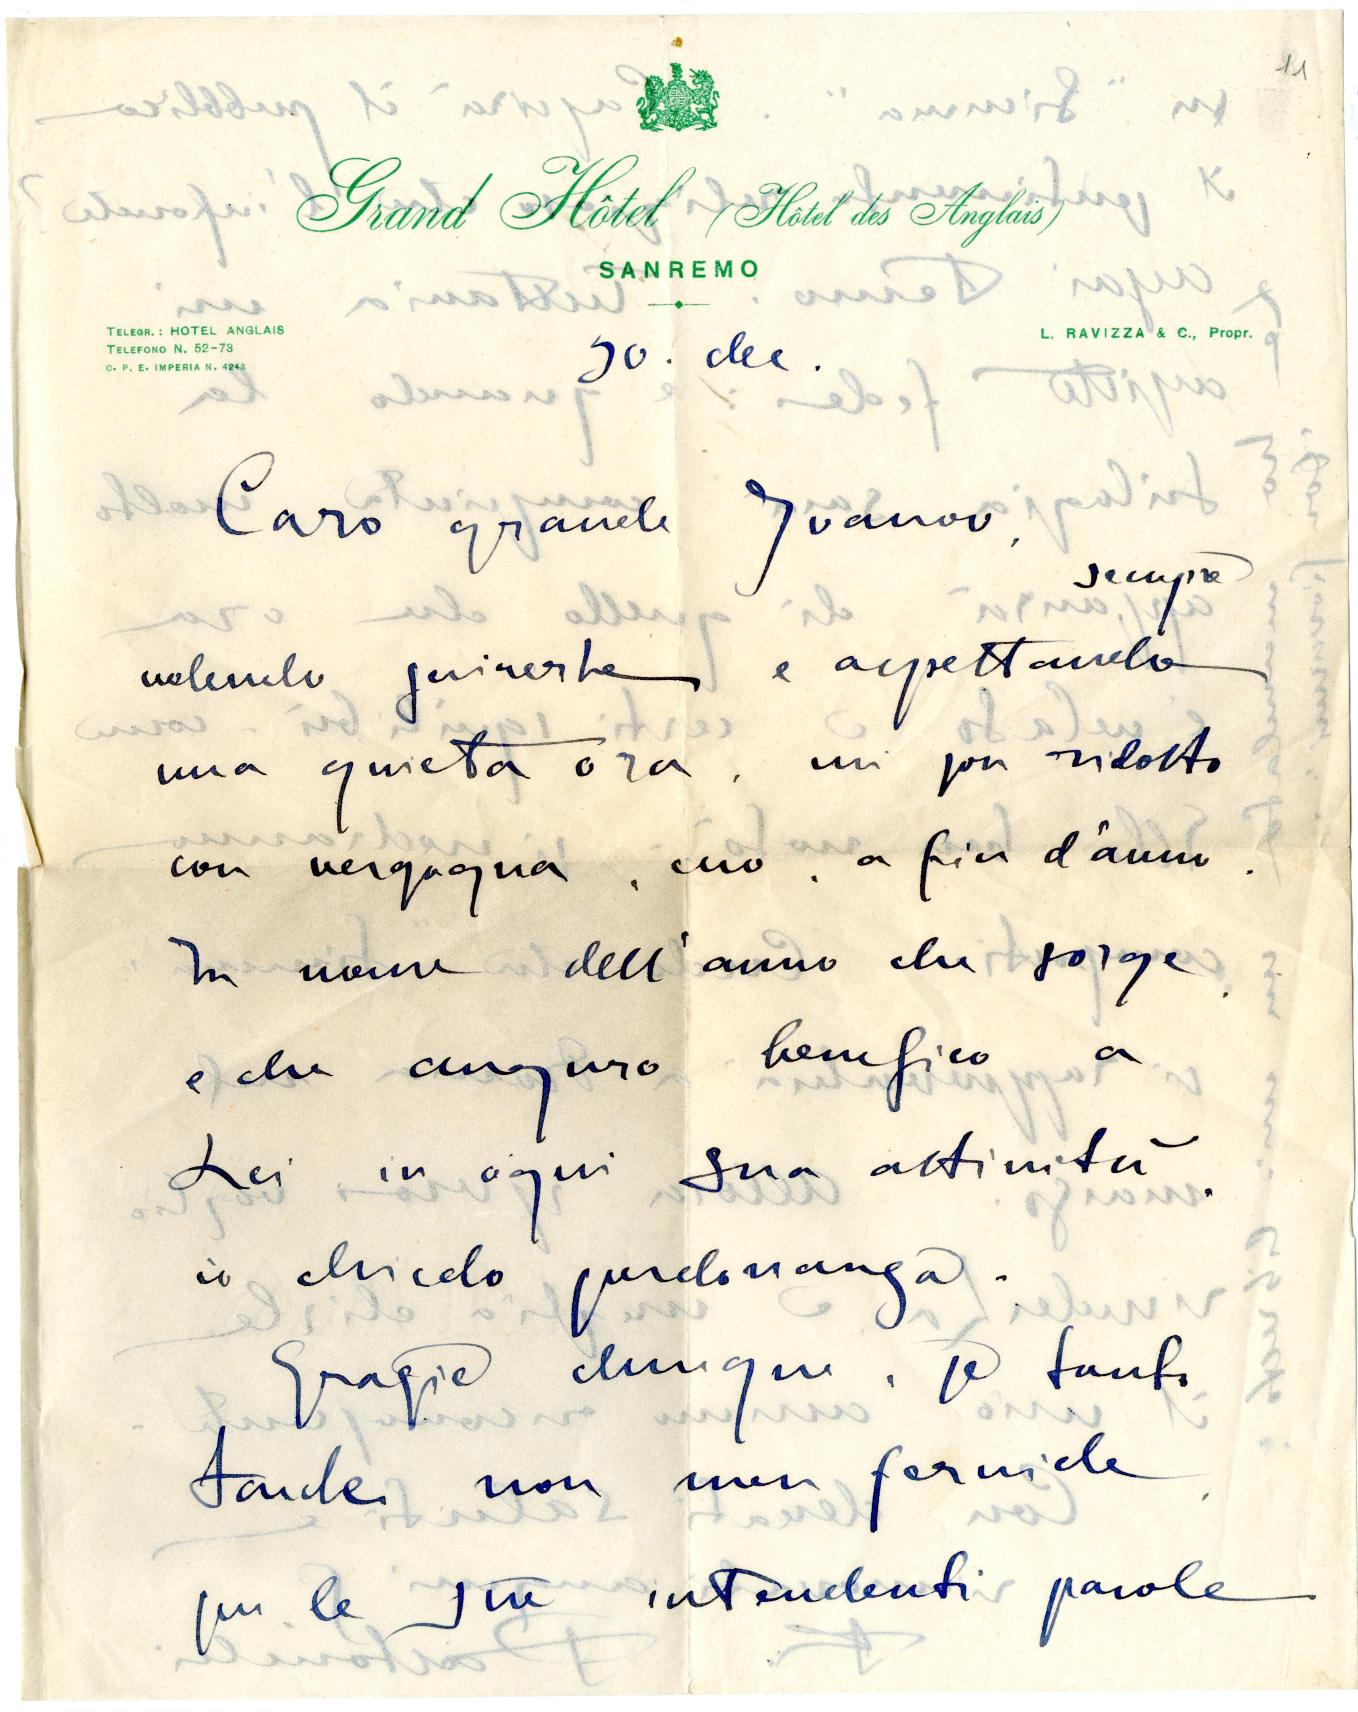 11
Grand Hôtel (Hôtel des Anglais)
SANREMO
TELEGR.: HOTEL ANGLAIS
TELEFONO N. 52-73
C. P. E. IMPERIA N. 4243
L. RAVIZZA & C., Propr.
30. dec.
Caro grande Ivanov,
sempre
volendo scriverLe e aspettando
una quieta ora, mi son ridotto
con vergogna, ecco, a fin d'anno.
In nome dell'anno che sorge,
e che auguro benefico a
Lei in ogni sua attività,
io chiedo perdonanza.
Grazie dunque, se tanto
tarde, non men fervide,
per le sue intendenti parole